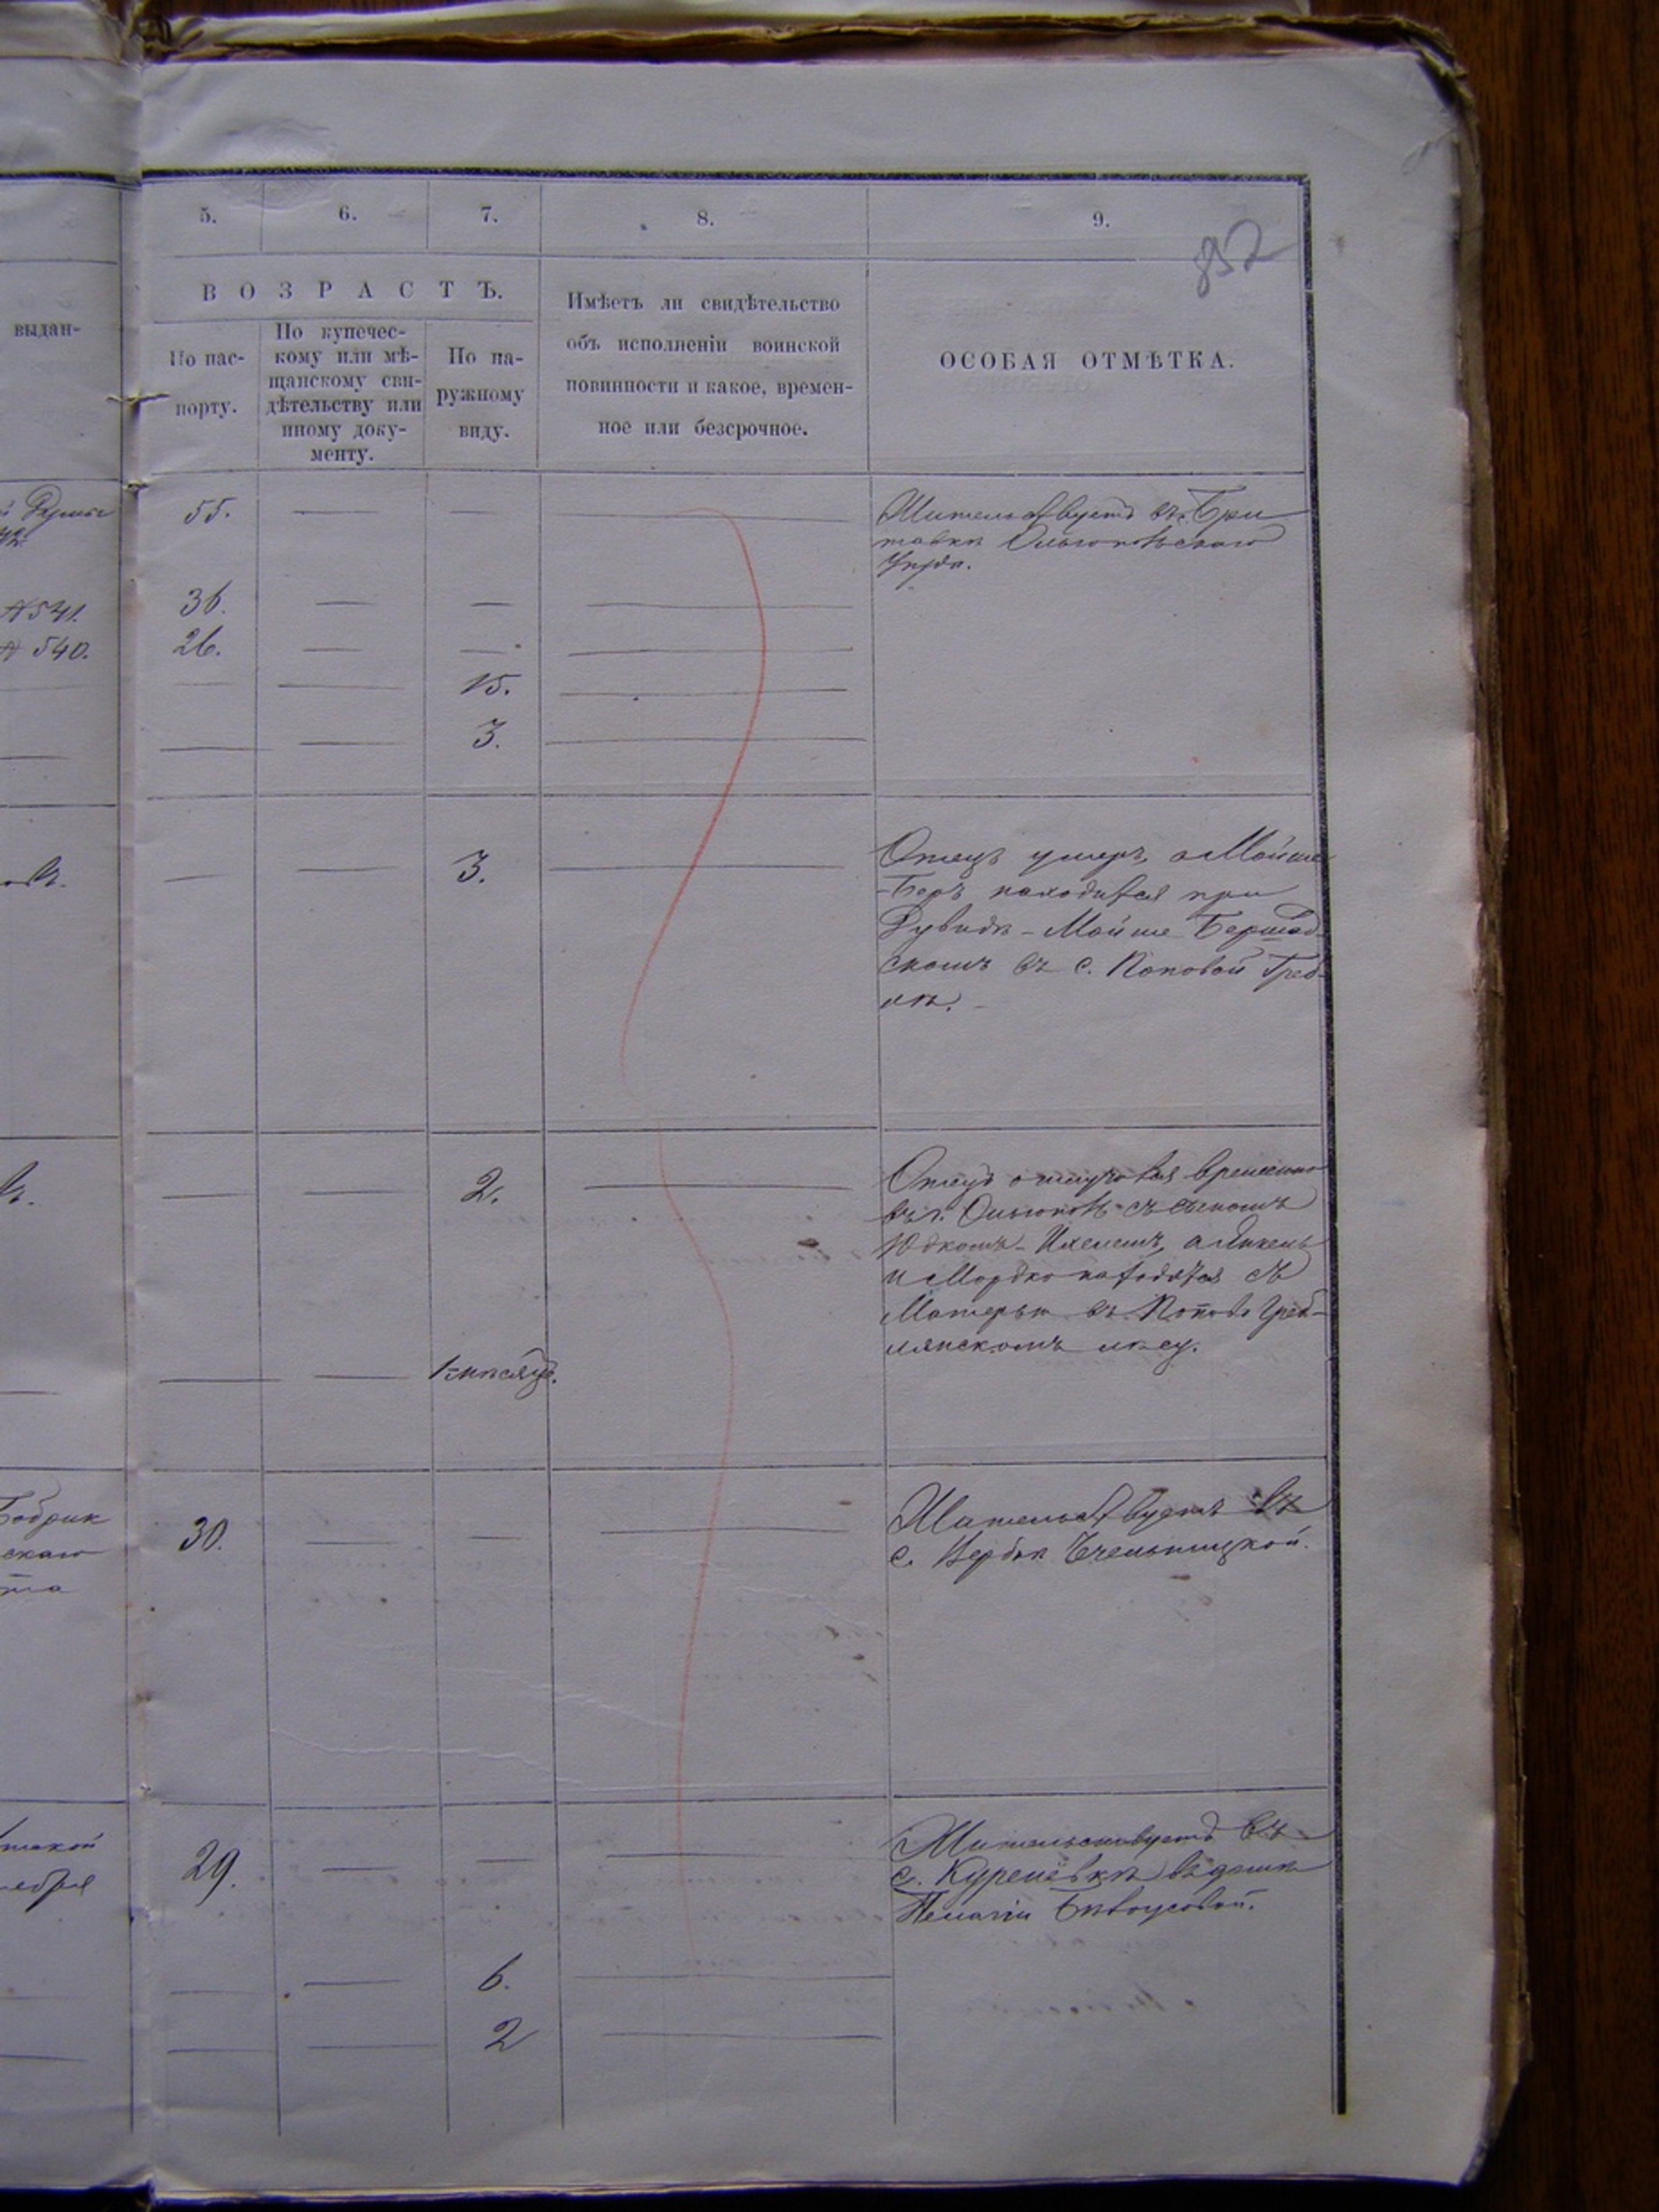 5. 6. 7. 8. 9.
892
ВОЗРАСТЪ.
выдан-
По пас-
порту.
По купечес-
кому или мѣ-
щанскому сви-
дѣтельству или
иному доку-
менту.
По на-
ружному
виду.
Имѣетъ ли свидѣтельство
объ исполненіи воинской
повинности и какое, времен-
ное или безсрочное.
ОСОБАЯ ОТМѢТКА.
55. — — — Жительствуетъ въ Бри
тавкѣ Ольгопольскаго
Уѣзда.
№ 541. 36. — — —
№ 540. 26. — — —
— — 15. —
— — 3. —
— — 3. — Отецъ умеръ, а Мойше
-Беръ находится при
Дувидѣ-Мойше Бершад-
скомъ въ с. Поповой Греб-
лѣ.
— — 2. — Отецъ отлучился временно
въ г. Ольгополь съ сыномъ
Юдкомъ-Ихелемъ, а Янкель
и Мордко находятся съ
Матерью въ Попово Греб-
лянскомъ лѣсу.
— — 1-мѣсяцъ.
30. — — — Жительствуетъ въ
с. Вербкѣ Чечельницкой.
29. — — — Жительствуетъ въ
с. Куренёвкѣ въ домѣ
Пелагіи Бѣлоусовой.
— — 6. —
— — 2 —